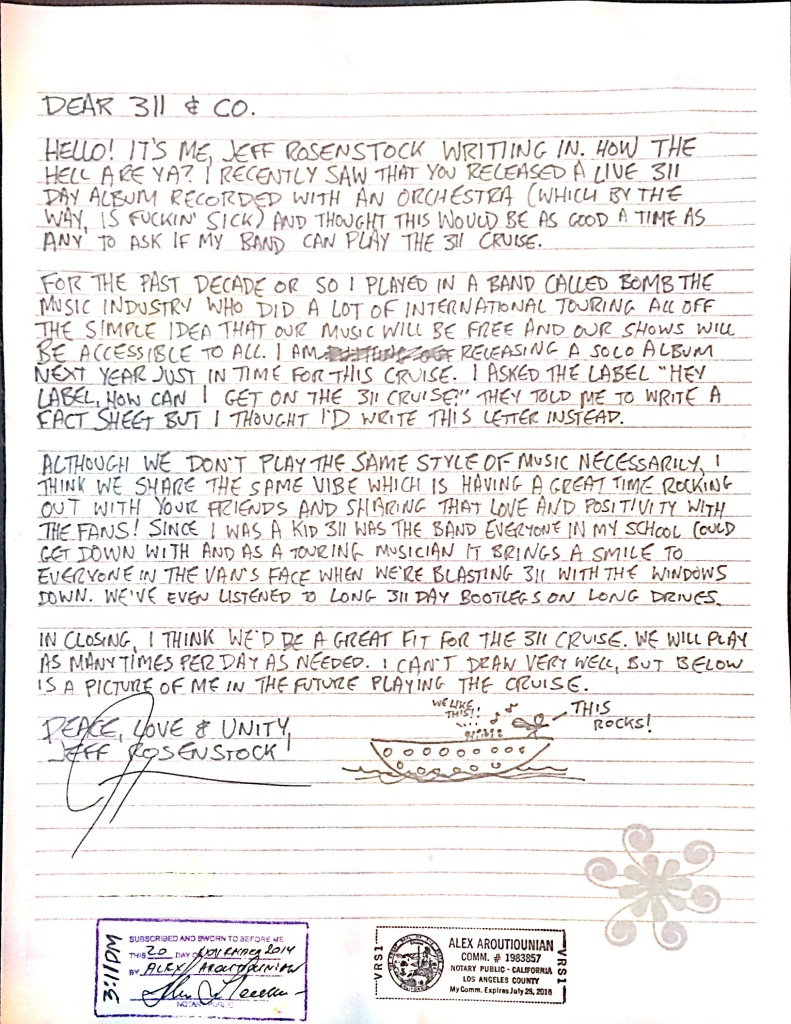 DEAR 311 & CO.
HELLO! IT'S ME, JEFF ROSENSTOCK WRITIING IN. HOW THE
HELL ARE YA? I RECENTLY SAW THAT YOU RELEASED A LIVE 311
DAY ALBUM RECORDED WITH AN ORCHESTRA (WHICH BY THE
WAY, IS FUCKIN' SICK) AND THOUGHT THIS WOULD BE AS GOOD A TIME AS
ANY TO ASK IF MY BAND CAN PLAY THE 311 CRUISE.
FOR THE PAST DECADE OR SO I PLAYED IN A BAND CALLED BOMB THE
MUSIC INDUSTRY WHO DID A LOT OF INTERNATIONAL TOURING ALL OFF
THE SIMPLE IDEA THAT OUR MUSIC WILL BE FREE AND OUR SHOWS WILL
BE ACCESSIBLE TO ALL. I AM RELEASING A SOLO ALBUM
NEXT YEAR JUST IN TIME FOR THIS CRUISE. I ASKED THE LABEL "HEY
LABEL, HOW CAN I GET ON THE 311 CRUISE?" THEY TOLD ME TO WRITE A
FACT SHEET BUT I THOUGHT I'D WRITE THIS LETTER INSTEAD.
ALTHOUGH WE DON'T PLAY THE SAME STYLE OF MUSIC NECESSARILY, I
THINK WE SHARE THE SAME VIBE WHICH IS HAVING A GREAT TIME ROCKING
OUT WITH YOUR FRIENDS AND SHARING THAT LOVE AND POSITIVITY WITH
THE FANS! SINCE I WAS A KID 311 WAS THE BAND EVERYONE IN MY SCHOOL COULD
GET DOWN WITH AND AS A TOURING MUSICIAN IT BRINGS A SMILE TO
EVERYONE IN THE VAN'S FACE WHEN WE'RE BLASTING 311 WITH THE WINDOWS
DOWN. WE'VE EVEN LISTENED TO LONG 311 DAY BOOTLEGS ON LONG DRIVES.
IN CLOSING, I THINK WE'D BE A GREAT FIT FOR THE 311 CRUISE. WE WILL PLAY
AS MANY TIMES PER DAY AS NEEDED. I CAN'T DRAW VERY WELL, BUT BELOW
IS A PICTURE OF ME IN THE FUTURE PLAYING THE CRUISE.
PEACE, LOVE & UNITY,
JEFF ROSENSTOCK
WE LIKE
THIS!
THIS
ROCKS!
3:11PM
SUBSCRIBED AND SWORN TO BEFORE ME
THIS 20 DAY OF NOVEMBER 2014
BY ALEX AROUTIOUNIAN
NOTARY PUBLIC
VRS1
ALEX AROUTIOUNIAN
COMM. # 1983857
NOTARY PUBLIC - CALIFORNIA
LOS ANGELES COUNTY
My Comm. Expires July 26, 2016
VRS1